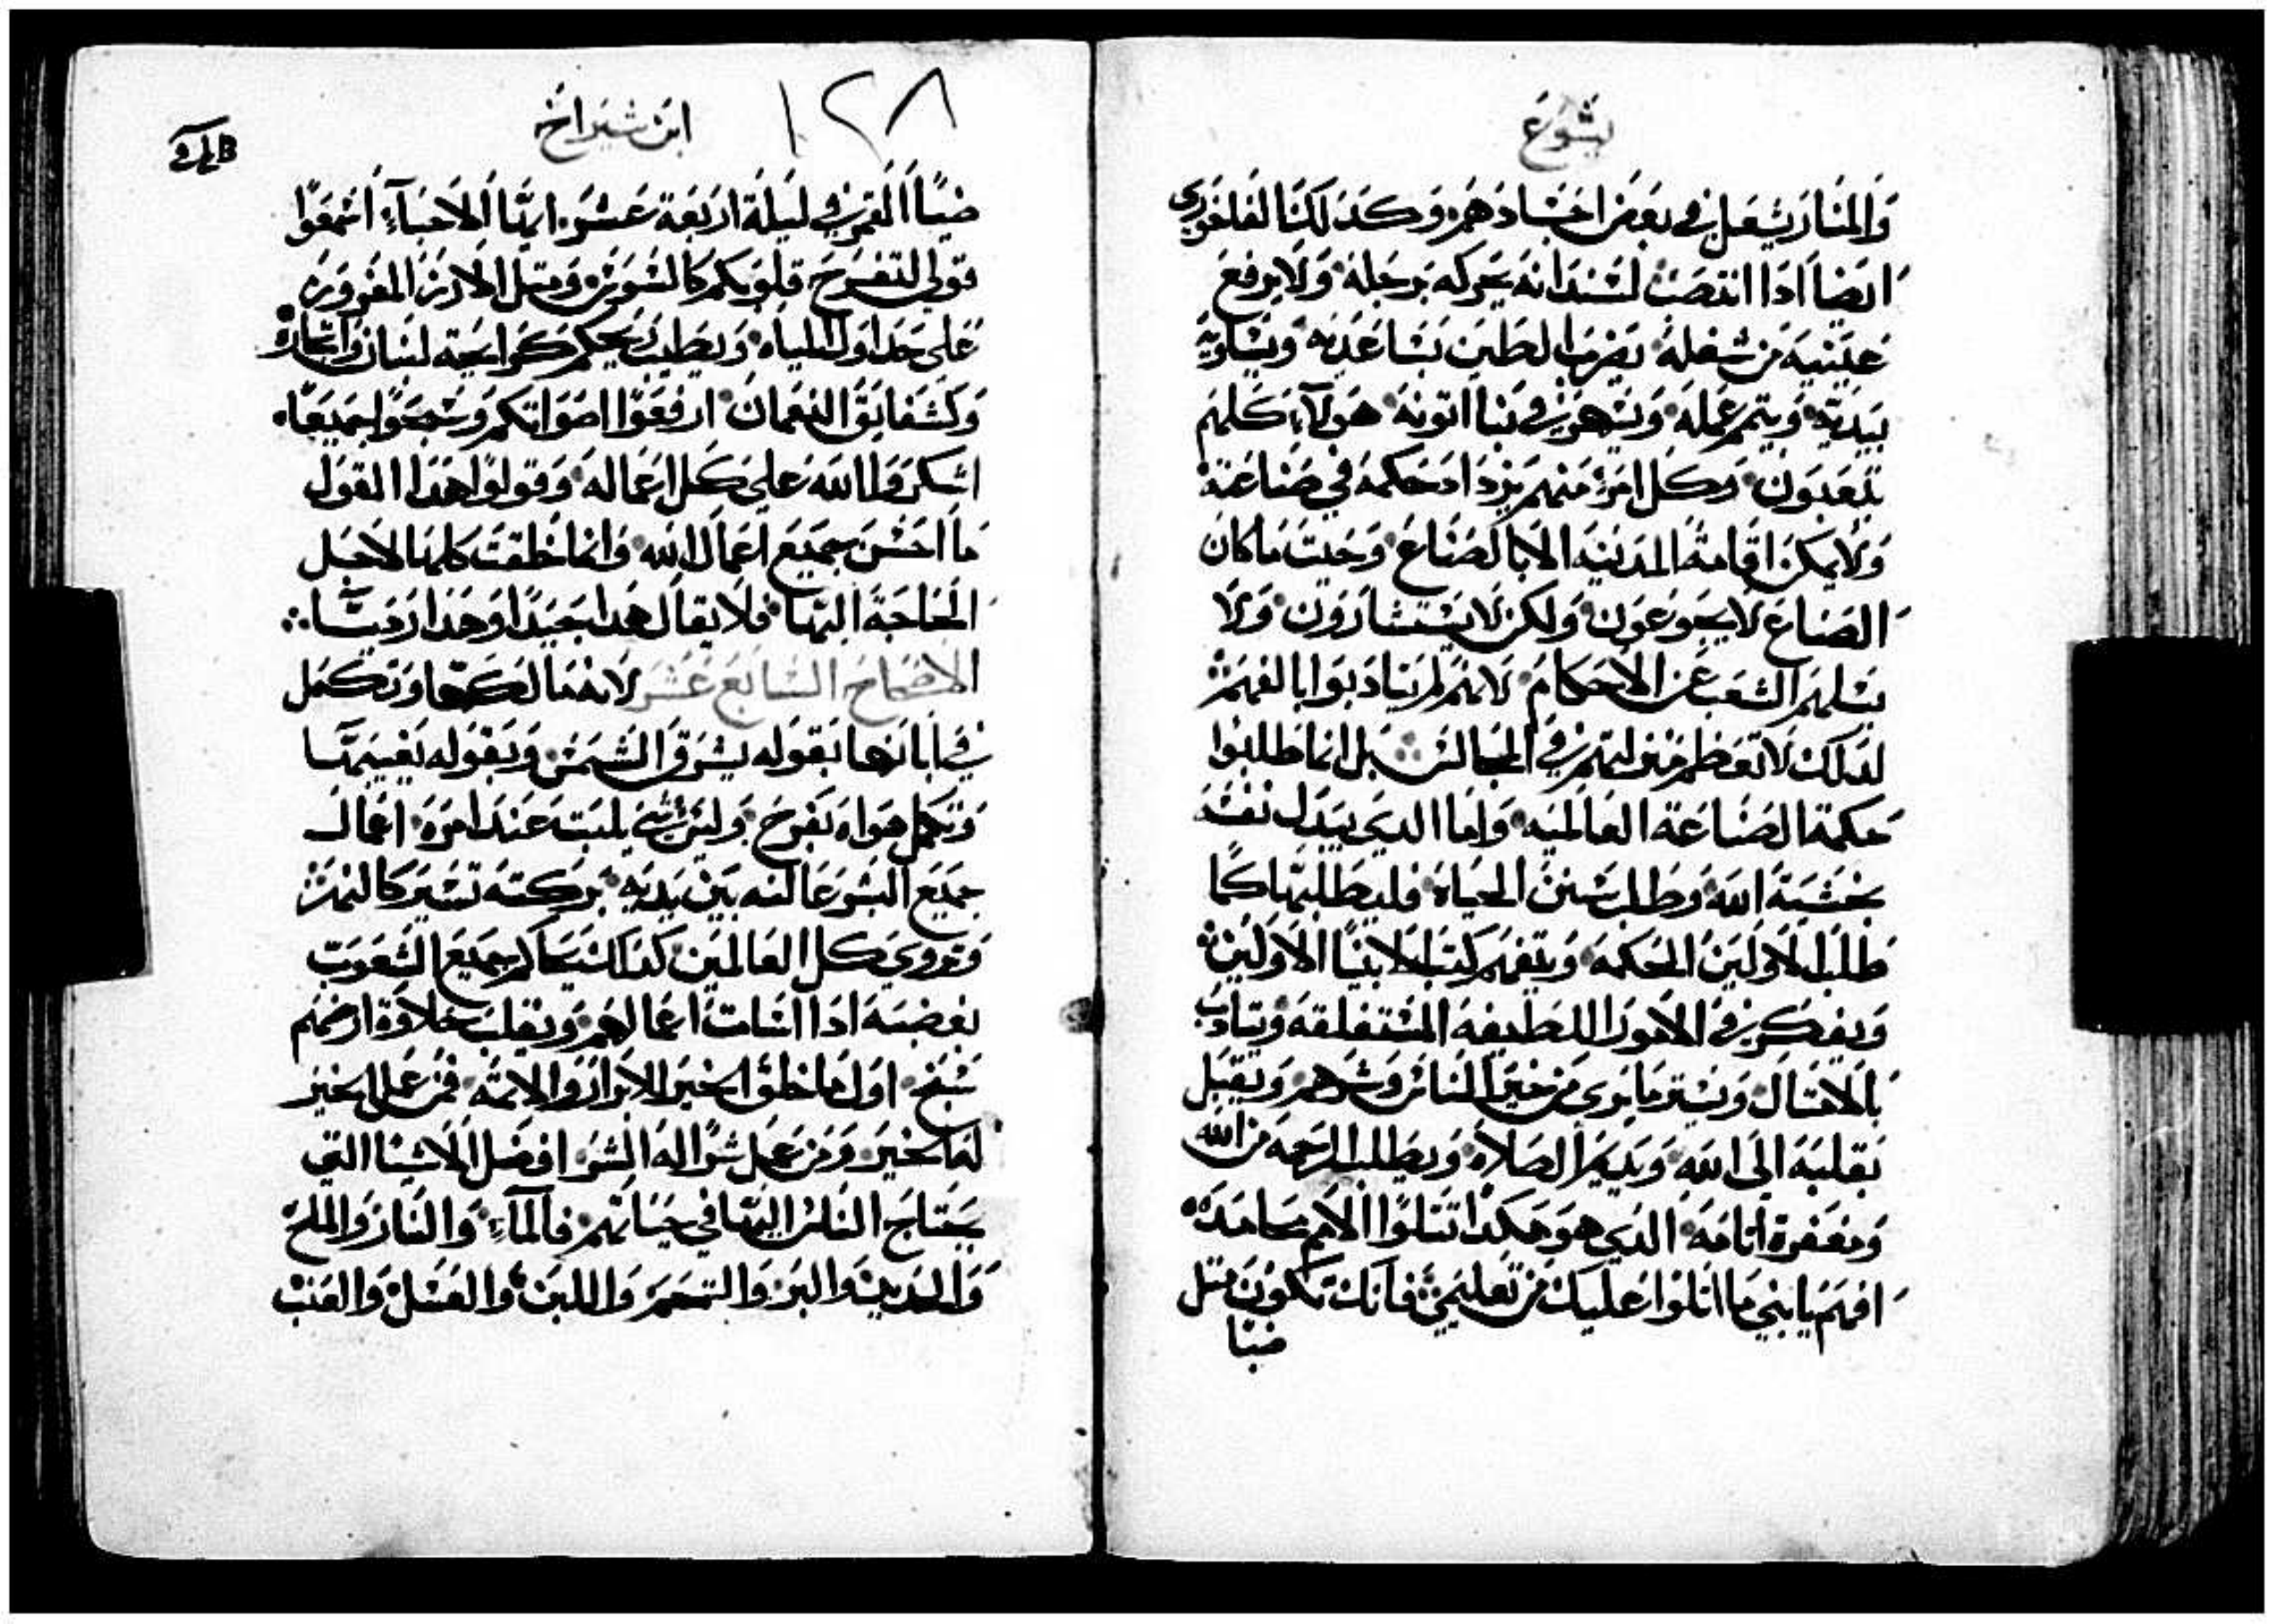 يشوع
والنار يشعل في بعض اجسادهم وكذلك الفاخوري
ايضا اذا انتصب لسندانه يحركه برجله ولا يرفع
عينيه من شغله يضرب الطين بساعديه ويساويه
بيديه ويتمم عمله ويسهر في بنا اتونه هولاء كلهم
يتعبون وكل امرء منهم يزداد حكمة في صناعته
ولا يمكن اقامة المدينه الا بالصناع وحيت ما كان
الصناع لا يجوعون ولكن لا يستشارون ولا
يسلهم الشعب عن الاحكام لانهم لم يتادبوا بالفهم
لذلك لا تعظم منزلتهم في المجالس بل انما طلبوا
حكمة الصناعة العالميه واما الدي يبدل نفسه
بخشية الله وطلب سنن الحياه فليطلبها كما
طلب الاولين الحكمه ويتفهم كتب الانبيا الاولين
ويفكر في الامور اللطيفه المستغلقه ويتادب
بالامتال ويستر ما يرى من خير الناس وشرهم ويقبل
بقلبه الى الله ويديم الصلاه ويطلب الرحمه من الله
ومغفرة اتامه الدي هو هكدا تتلوا الامم محامده
افهم يا بني ما اتلوا عليك من تعليمي فانك تكون متل
ضيا
ابن شيراخ
١٢٨
ضيا القمر في ليلة اربعة عشر ايها الاحباء اسمعوا
قولي لتفرح قلوبكم كالسوسن ومتل الارز المغروز
على جداول المياه ويطيب ريحكم كرايحة لبنان واتماره
وكشقايق النعمان ارفعوا اصواتكم وسبحوا جميعا
اشكروا الله على كل اعماله وقولوا هدا القول
ما احسن جميع اعمال الله وانما خلقت كلها لاجل
الحاجة اليها فلا يقال هدا جيدا وهذا رديا
الاصحاح السابع عشر لانها لكها وتكمل
في ابانها بقوله يشرق الشمس وبقوله يغيبها
وتكمل هواه بفرح وليس شي يلبت عند امره اعمال
جميع البشر عالنه بين يديه بركته تسير كالنهر
وتروي كل العالمين كذلك يحاكم جميع الشعوب
بغضبه ادا اسات اعمالهم ويقلب حلاوة ارضهم
سبخ اول ما خلق الخير للابرار والاتمه فمن عمل الخير
لقا الخير ومن عمل شرا له الشر افضل الاشيا التي
يحتاج الناس اليها في حياتهم فالماء والنار والملح
والحديد والبر والتحمر واللبن والعسل والعنب